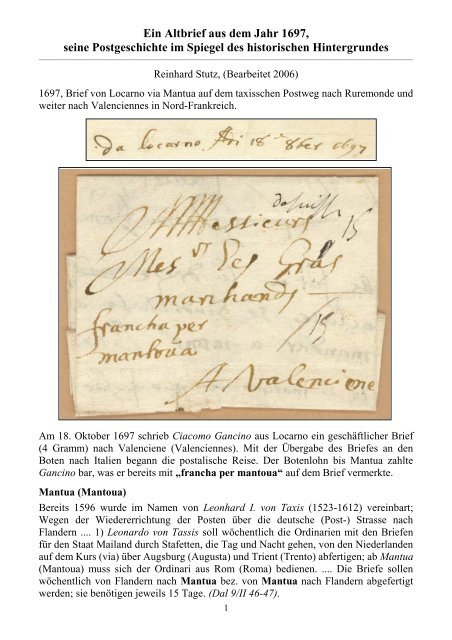 Ein Altbrief aus dem Jahr 1697,
seine Postgeschichte im Spiegel des historischen Hintergrundes
Reinhard Stutz, (Bearbeitet 2006)
1697, Brief von Locarno via Mantua auf dem taxisschen Postweg nach Ruremonde und
weiter nach Valenciennes in Nord-Frankreich.
da locarno Adi 18 8ber 1697
Messieurs
15
Mes Les Gras
marchands
francha per
15
mantoua
A Valencione
Am 18. Oktober 1697 schrieb Ciacomo Gancino aus Locarno ein geschäftlicher Brief
(4 Gramm) nach Valenciene (Valenciennes). Mit der Übergabe des Briefes an den
Boten nach Italien begann die postalische Reise. Der Botenlohn bis Mantua zahlte
Gancino bar, was er bereits mit „francha per mantoua“ auf dem Brief vermerkte.
Mantua (Mantoua)
Bereits 1596 wurde im Namen von Leonhard I. von Taxis (1523-1612) vereinbart;
Wegen der Wiedererrichtung der Posten über die deutsche (Post-) Strasse nach
Flandern .... 1) Leonardo von Tassis soll wöchentlich die Ordinarien mit den Briefen
für den Staat Mailand durch Stafetten, die Tag und Nacht gehen, von den Niederlanden
auf dem Kurs (via) über Augsburg (Augusta) und Trient (Trento) abfertigen; ab Mantua
(Mantoua) muss sich der Ordinari aus Rom (Roma) bedienen. .... Die Briefe sollen
wöchentlich von Flandern nach Mantua bez. von Mantua nach Flandern abgefertigt
werden; sie benötigen jeweils 15 Tage. (Dal 9/II 46-47).
1